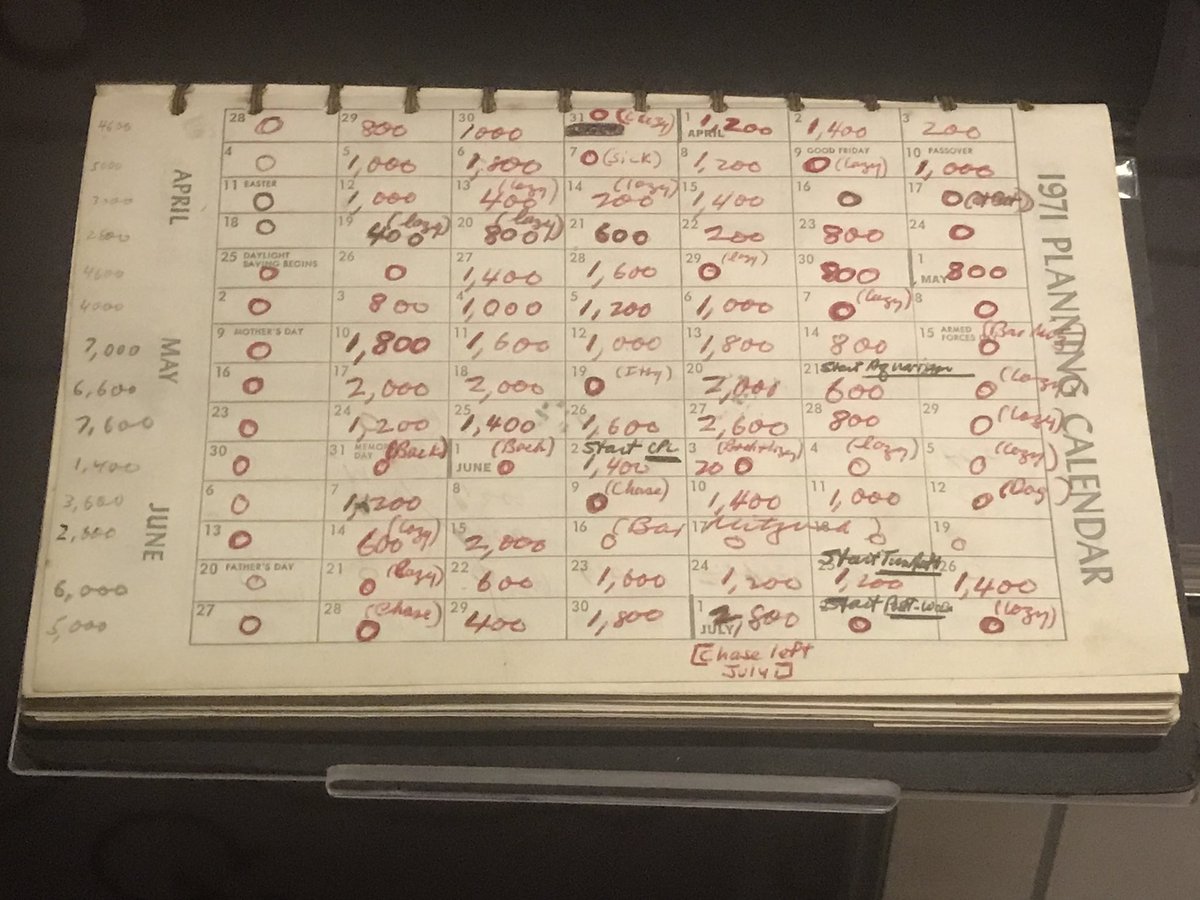 1971 PLANNING CALENDAR
APRIL
MAY
JUNE
4600 28 0 29 800 30 1000 31 0 (Lazy) 1 APRIL 1,200 2 1,400 3 200
5000 4 0 5 1,000 6 1,800 7 0 (Sick) 8 1,200 9 GOOD FRIDAY 0 (lazy) 10 PASSOVER 1,000
11 EASTER 0 12 1,000 13 (lazy) 400 14 (lazy) 200 15 1,400 16 0 17 0
2800 18 0 19 (lazy) 400 20 (lazy) 800 21 600 22 200 23 800 24 0
4600 25 DAYLIGHT SAVING BEGINS 0 26 0 27 1,400 28 1,600 29 0 (lazy) 30 800 1 MAY 800
4000 2 0 3 800 4 1,000 5 1,200 6 1,000 7 0 (Lazy) 8 0
7,000 9 MOTHER'S DAY 0 10 1,800 11 1,600 12 1,000 13 1,800 14 800 15 ARMED FORCES 0
6,600 16 0 17 2,000 18 2,000 19 0 20 2,000 21 Start Aquarium 600 0 (Lazy)
7,600 23 0 24 1,200 25 1,400 26 1,600 27 2,600 28 800 29 0 (Lazy)
1,400 30 0 31 MEMORIAL DAY 0 (Back) 1 JUNE 0 (Back) 2 Start CPL 1,400 3 20 0 4 (lazy) 0 5 0 (Lazy)
3,600 6 0 7 1,200 8 9 0 (Chase) 10 1,400 11 1,000 12 0 (Dog)
2,600 13 0 14 (lazy) 600 15 2,000 16 0 (Bar 17 Mitzvah 0 18 ) 0 19 0
6,000 20 FATHER'S DAY 0 21 0 (Lazy) 22 600 23 1,600 24 1,200 25 Start 1,200 26 1,400
5,000 27 0 28 (Chase) 0 29 400 30 1,800 1 JULY 2,800 Start 0 0 (Lazy)
[Chase left
July 1]